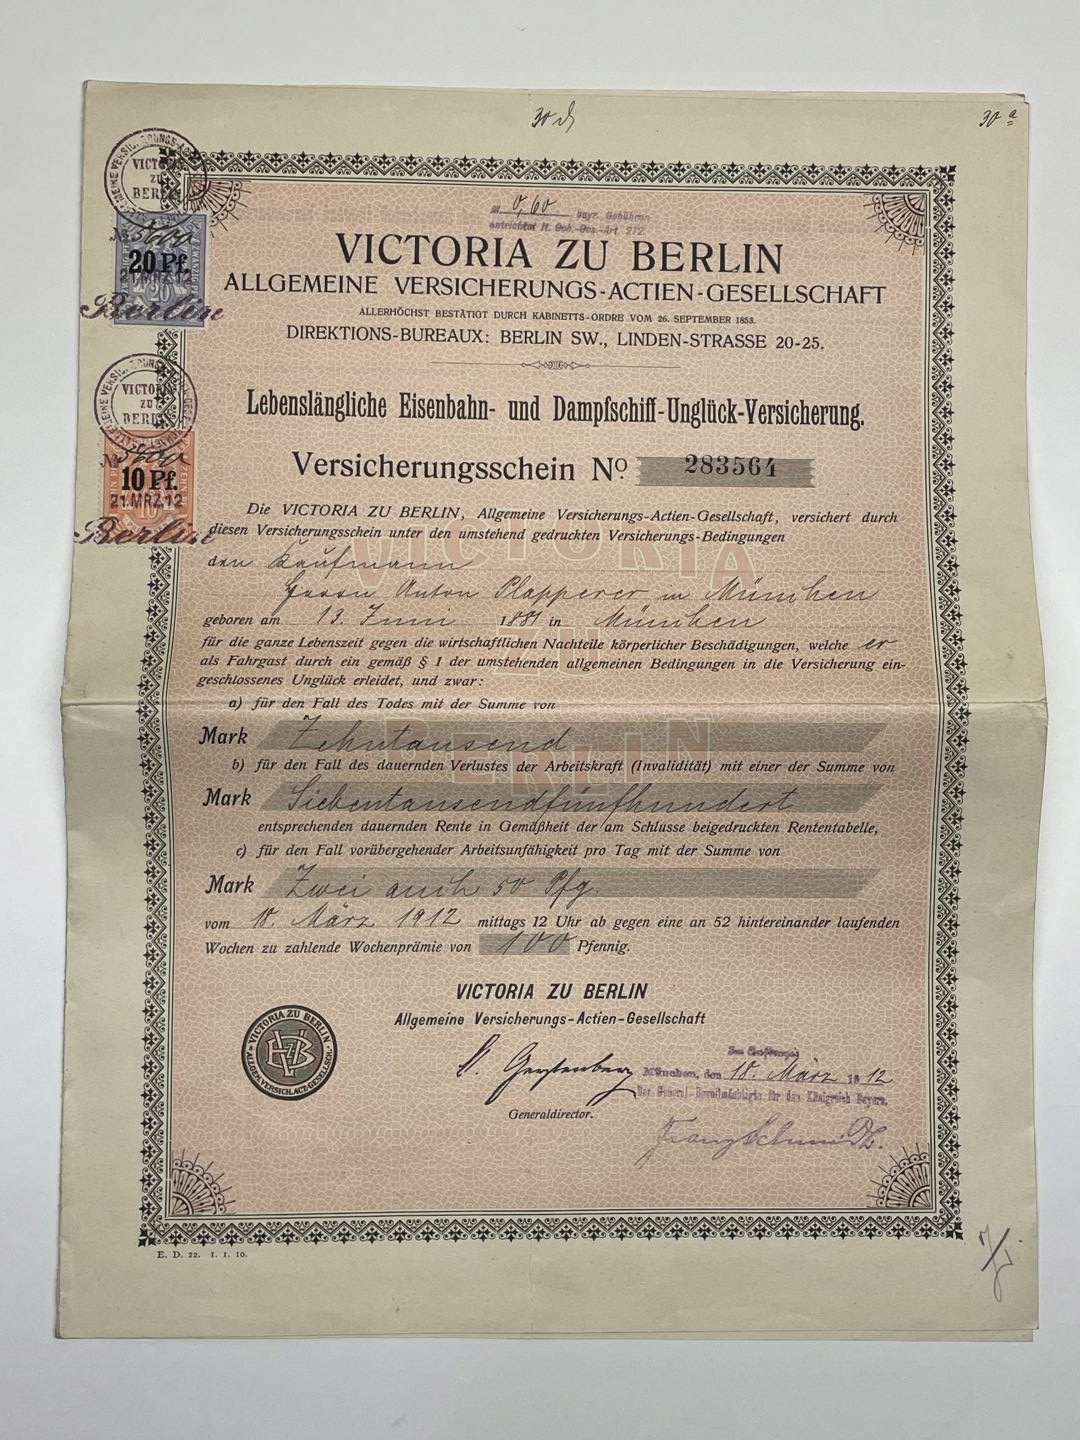 30 d
30 a
ALLGEMEINE VERSICHERUNGS-ACTIEN-GESELLSCHAFT
VICTORIA
ZU
BERLIN
20 Pf.
21. MRZ. 12
Berlin
VICTORIA
ZU
BERLIN
10 Pf.
21. MRZ. 12
Berlin
M. 0,60 bayr. Gebühren
entrichtet lt. Geb.-Ges. Art 272
VICTORIA ZU BERLIN
ALLGEMEINE VERSICHERUNGS-ACTIEN-GESELLSCHAFT
ALLERHÖCHST BESTÄTIGT DURCH KABINETTS-ORDRE VOM 26. SEPTEMBER 1853.
DIREKTIONS-BUREAUX: BERLIN SW., LINDEN-STRASSE 20-25.
Lebenslängliche Eisenbahn- und Dampfschiff-Unglück-Versicherung.
Versicherungsschein No. 283564
Die VICTORIA ZU BERLIN, Allgemeine Versicherungs-Actien-Gesellschaft, versichert durch
diesen Versicherungsschein unter den umstehend gedruckten Versicherungs-Bedingungen
den Kaufmann
Herrn Anton Plapperer in München
geboren am 13. Juni 1881 in München
für die ganze Lebenszeit gegen die wirtschaftlichen Nachteile körperlicher Beschädigungen, welche er
als Fahrgast durch ein gemäß § 1 der umstehenden allgemeinen Bedingungen in die Versicherung ein-
geschlossenes Unglück erleidet, und zwar:
a) für den Fall des Todes mit der Summe von
Mark Zehntausend
b) für den Fall des dauernden Verlustes der Arbeitskraft (Invalidität) mit einer der Summe von
Mark Siebentausendfünfhundert
entsprechenden dauernden Rente in Gemäßheit der am Schlusse beigedruckten Rententabelle,
c) für den Fall vorübergehender Arbeitsunfähigkeit pro Tag mit der Summe von
Mark Zwei auch 50 Pfg.
vom 18. März 1912 mittags 12 Uhr ab gegen eine an 52 hintereinander laufenden
Wochen zu zahlende Wochenprämie von 100 Pfennig.
VICTORIA
ZU
BERLIN
VICTORIA ZU BERLIN
Allgemeine Versicherungs-Actien-Gesellschaft
VICTORIA ZU BERLIN
ALLGEM. VERSICH. ACT. GESELLSCH.
VzB
Gerstenberg
Generaldirector.
München, den 18. März 1912
Der General-Bevollmächtigte für das Königreich Bayern.
E. D. 22. 1. 1. 10.